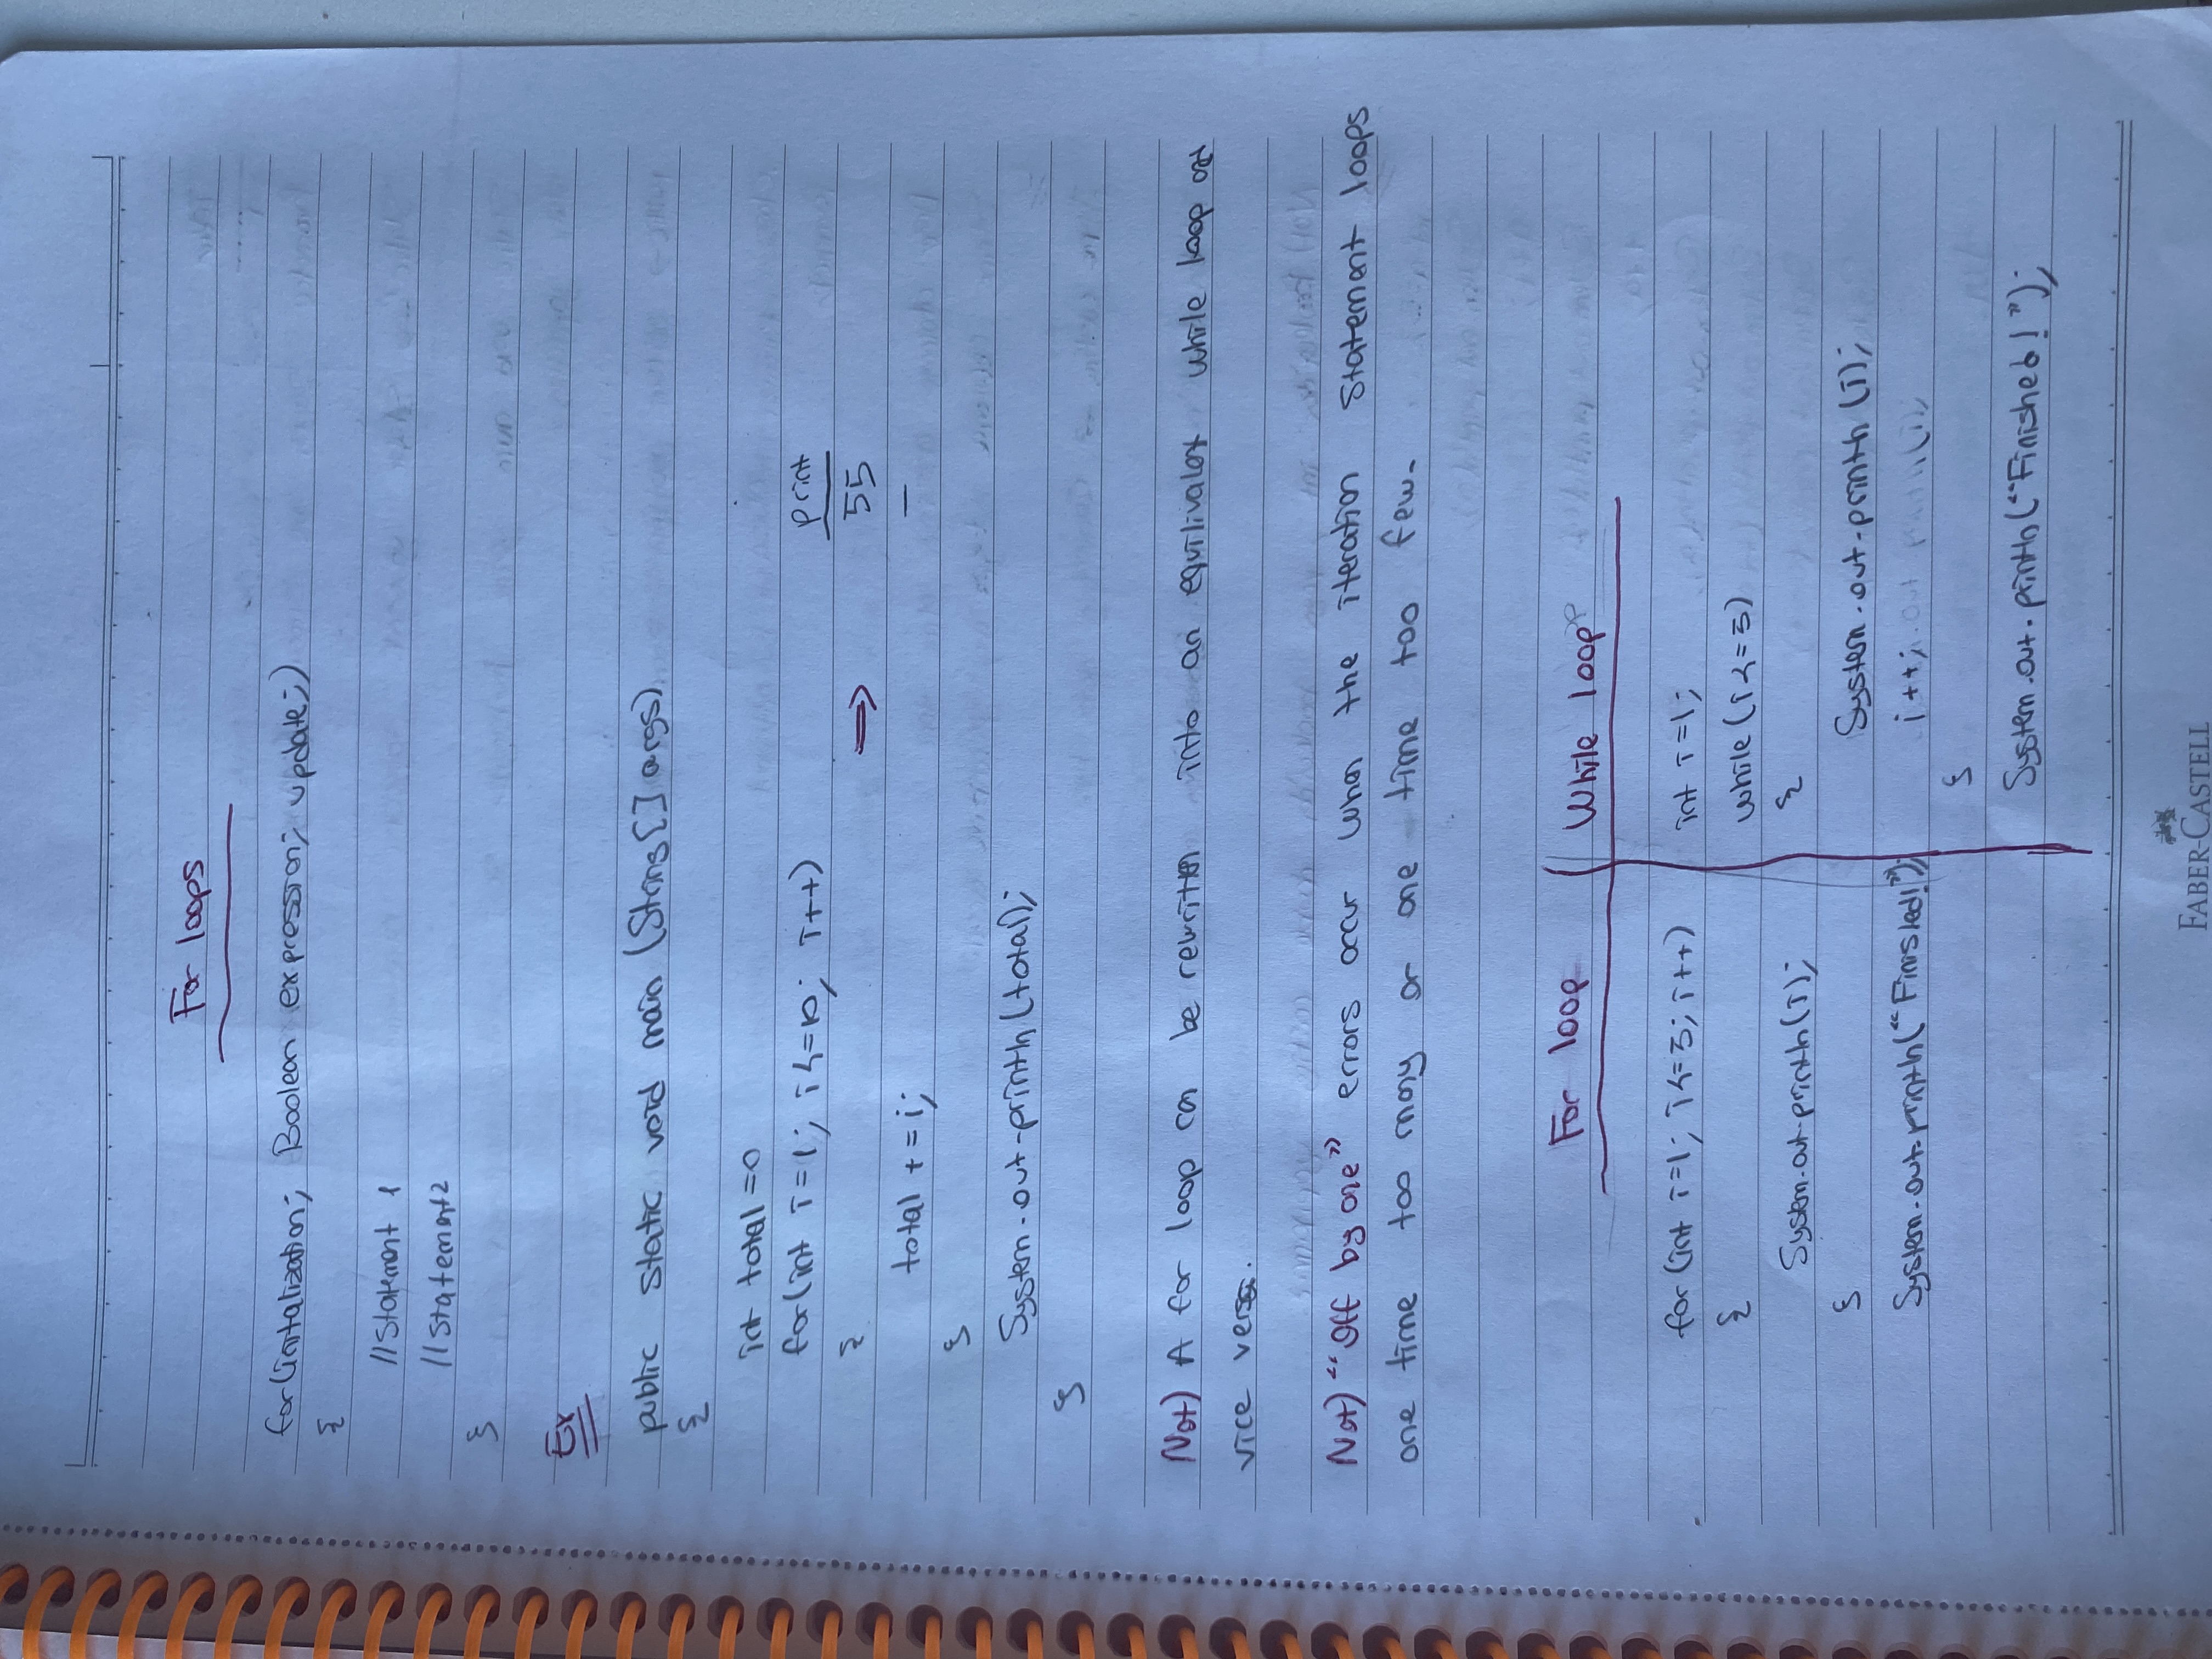 For loops
for(initalization; Boolean expression; update;)
{
//Statement 1
//Statement2
}
Ex
public static void main (String[] args)
{
int total=0
for(int i=1; i<=10; i++)
print
{
⇒ 55
total += i;
}
System.out.println(total);
}
Not) A for loop can be rewritten into an equilivalet while loop and
vice versa.
Not) "Off by one" errors occur when the iteration statement loops
one time too many or one time too few.
For loop
for(int i=1; i<=5; i++)
{
System.out.println(i);
}
System.out.println("Finished!");
While loop
int i=1;
while(i<=5)
{
System.out.println(i);
i++;
}
System.out.println("Finished!");
FABER-CASTELL